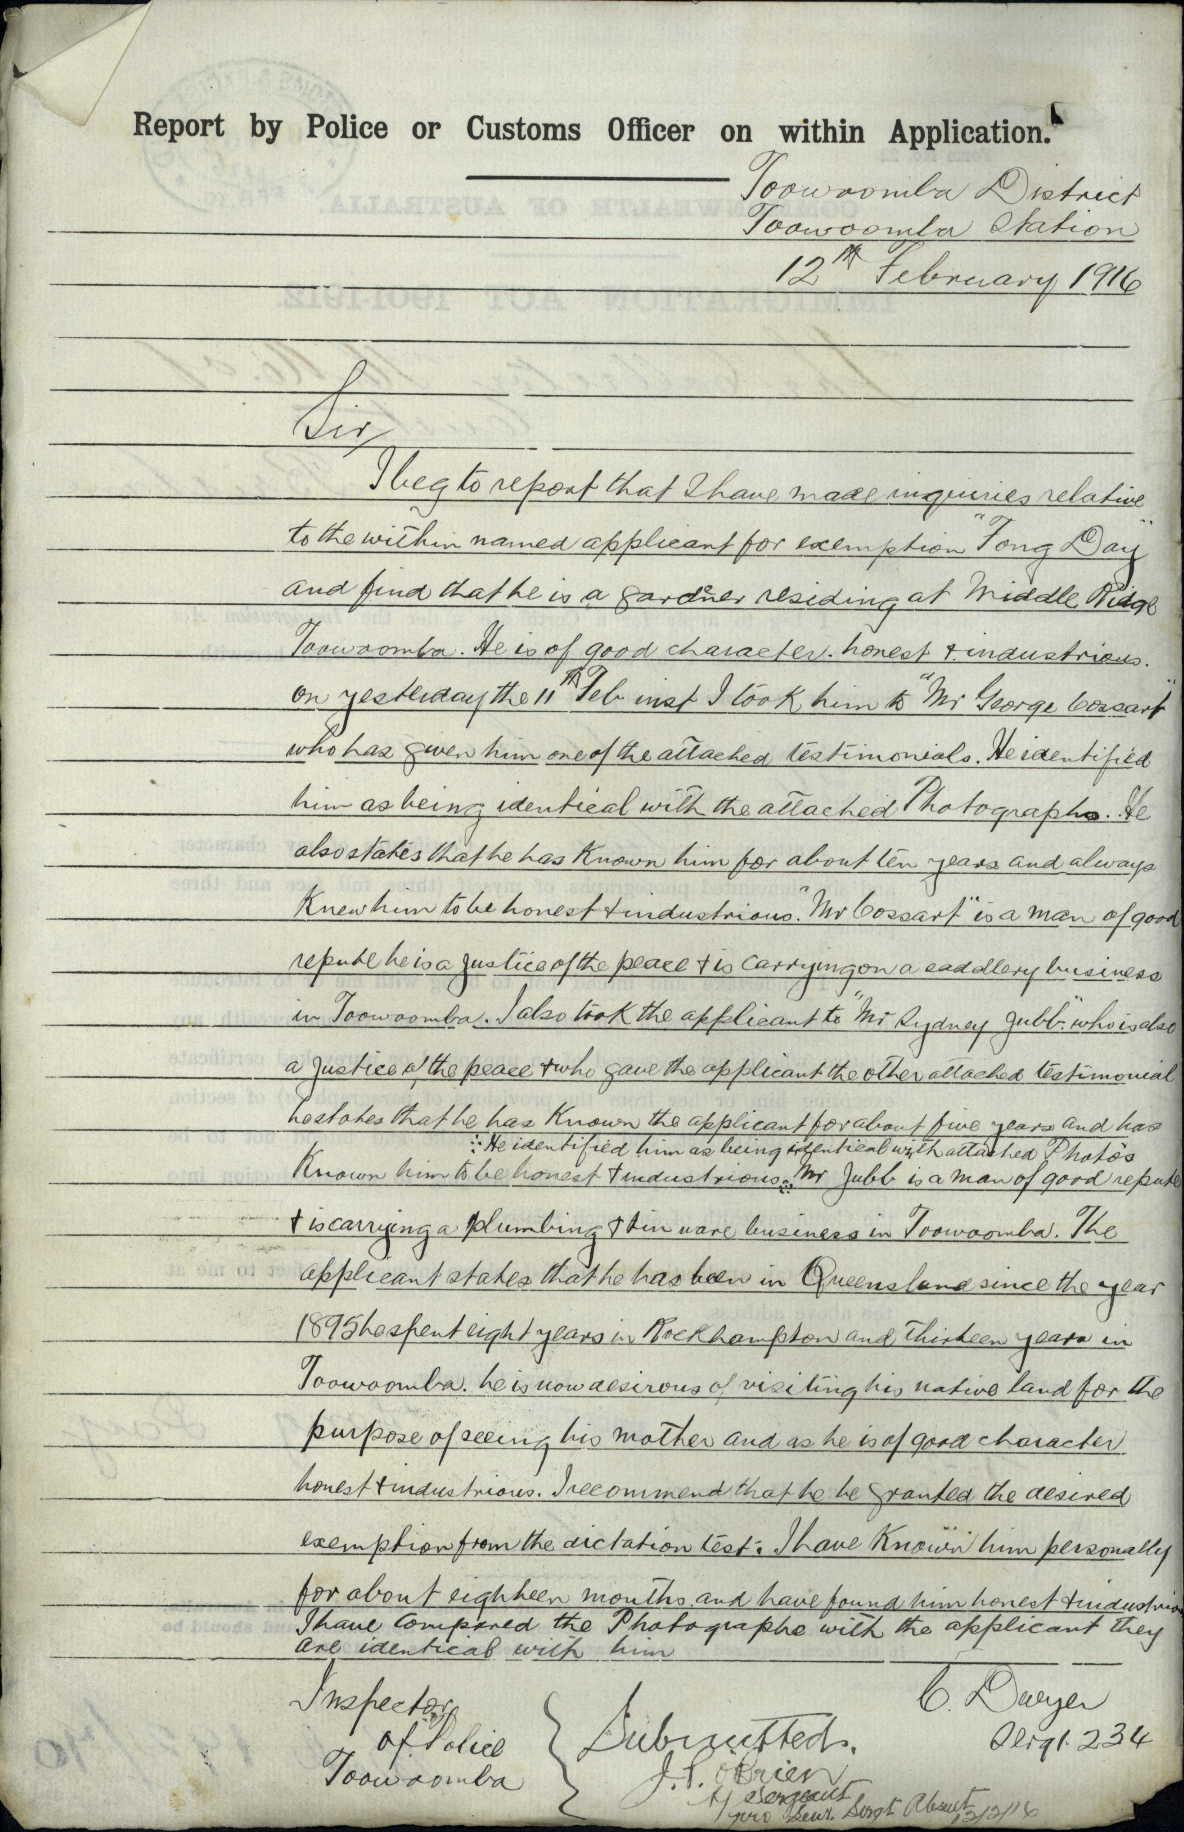 Report by Police or Customs Officer on within Application.
Toowoomba District
Toowoomba Station
12th February 1916
Sir,
I beg to report that I have made inquiries relative
to the within named applicant for exemption "Tong Day"
and find that he is a gardner residing at Middle Ridge
Toowoomba. He is of good character. honest & industrious.
on yesterday the 11th Feb inst I took him to "Mr George Cossart"
who has given him one of the attached testimonials. He identified
him as being identical with the attached Photographs. He
also states that he has known him for about ten years and always
knew him to be honest & industrious. "Mr Cossart" is a man of good
repute he is a justice of the peace & is carrying on a saddlery business
in Toowoomba. I also took the applicant to "Mr Sydney Jubb" who is also
a justice of the peace & who gave the applicant the other attached testimonial
he states that he has known the applicant for about five years and has
∴ He identified him as being identical with attached Photos
known him to be honest & industrious. Mr Jubb is a man of good repute
& is carrying a plumbing & tin ware business in Toowoomba. The
applicant states that he has been in Queensland since the year
1895 he spent eight years in Rockhampton and thirteen years in
Toowoomba. he is now desirous of visiting his native land for the
purpose of seeing his mother and as he is of good character
honest & industrious. I recommend that he be granted the desired
exemption from the dictation test. I have known him personally
for about eighteen months and have found him honest & industrious
I have compared the Photographs with the applicant they
are identical with him
C. Dwyer
Sergt. 234
Inspector
of Police
Toowoomba
Submitted.
J. P. O'Brien
A/ Sergeant
pro Senr. Sergt Absent
12/2/16